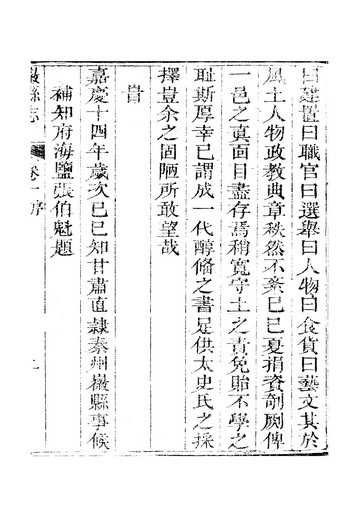 曰建置曰職官曰選舉曰人物曰食貨曰藝文其於
風土人物政教典章秩然不紊己巳夏捐資剞劂俾
一邑之真面目盡存焉稍寬守土之責免貽不學之
恥斯厚幸已謂成一代醇備之書足供太史氏之採
擇豈余之固陋所敢望哉
旹
嘉慶十四年歲次己巳知甘肅直隷秦州徽縣事候
補知府海鹽張伯魁題
徽縣志
卷一序